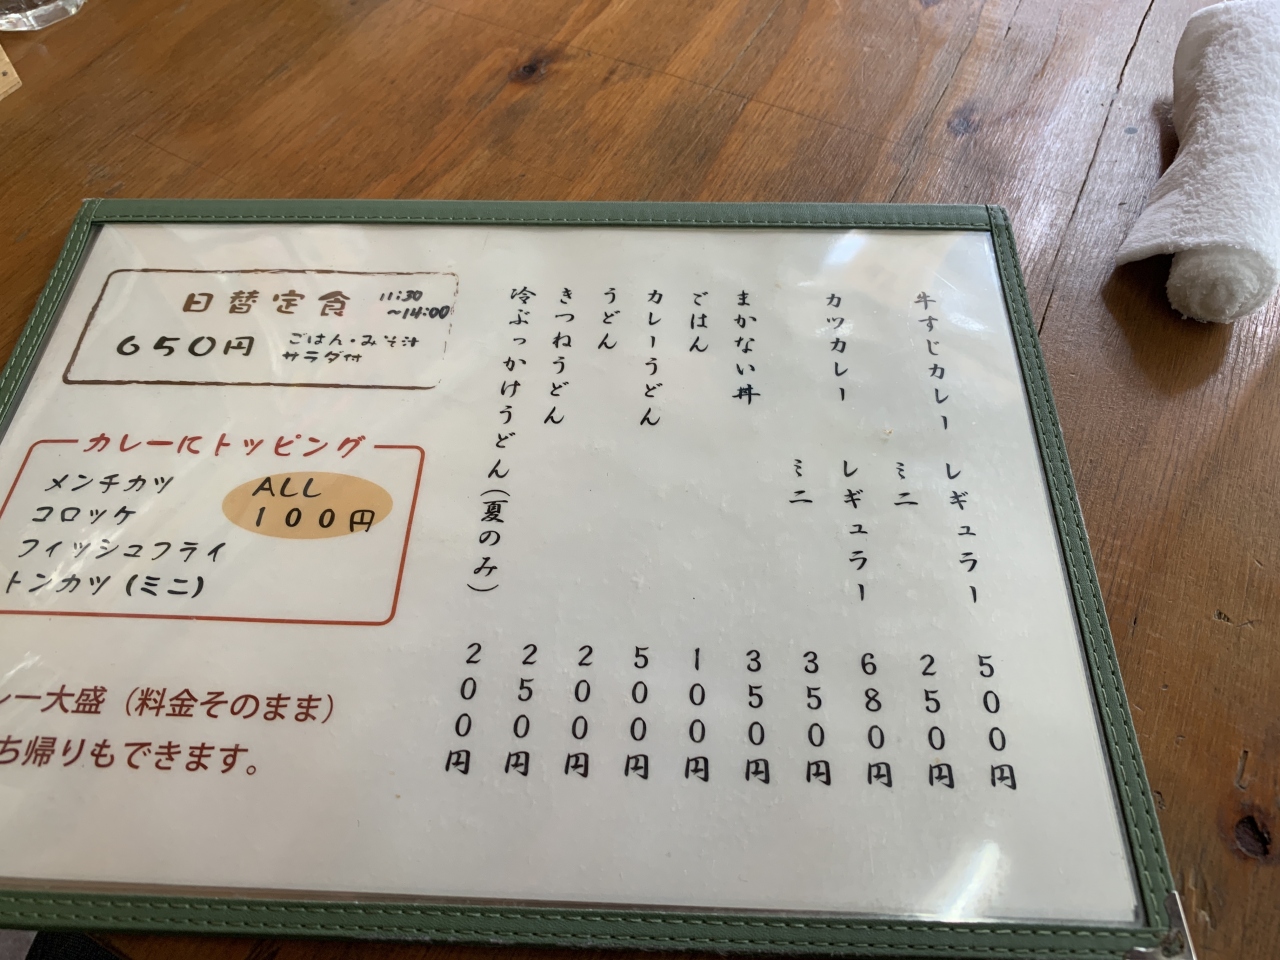 牛すじカレー レギュラー 500円
ミニ 250円
カツカレー レギュラー 680円
ミニ 350円
まかない丼 350円
ごはん 100円
カレーうどん 500円
うどん 200円
きつねうどん 250円
冷ぶっかけうどん(夏のみ) 200円
日替定食 11:30
~14:00
650円 ごはん・みそ汁
サラダ付
カレーにトッピング
メンチカツ ALL
コロッケ 100円
フィッシュフライ
トンカツ(ミニ)
レー大盛(料金そのまま)
ち帰りもできます。